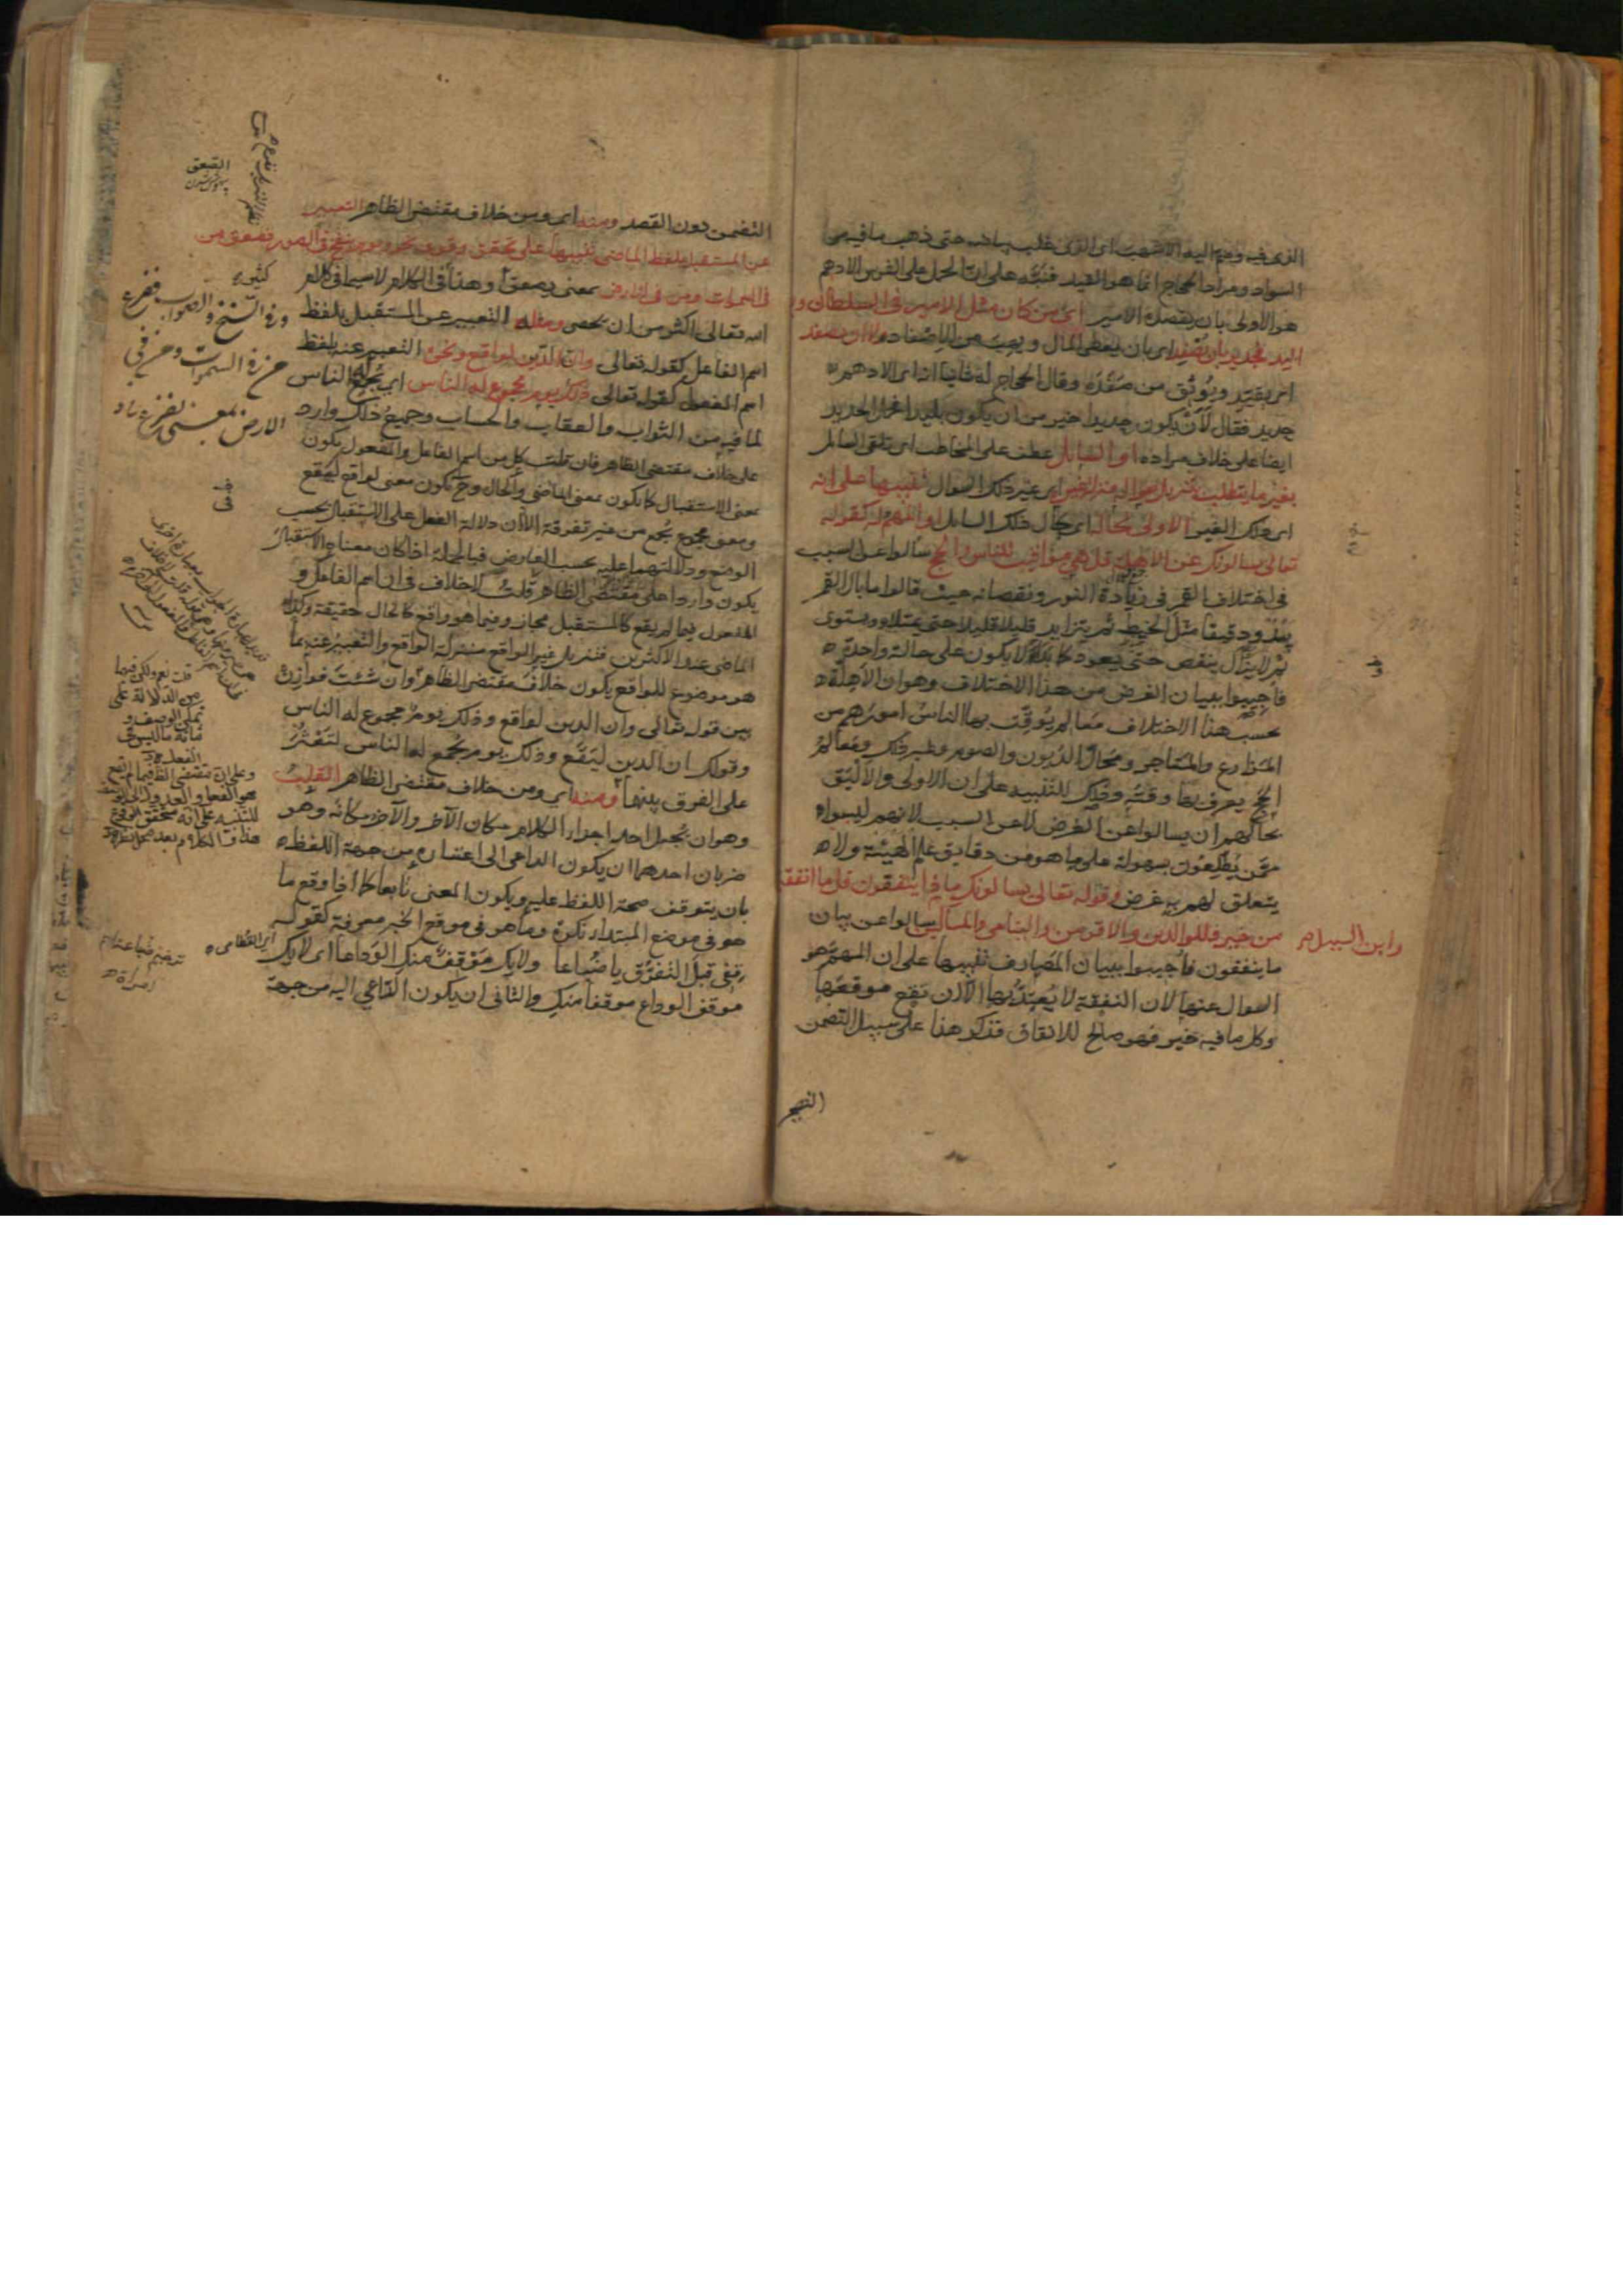 الذى فيه وضم اليه الاشهب اى الذى غلب بياضه حتى ذهب ما فيه من
السواد ومراد الحجاج انما هو القيد فنبّه على ان الحمل على الفرس الادهم
هو الاولى بان يقصده الامير اى من كان مثل الامير فى السلطان و
اليد فجدير بان يُصفد اى بان يعطى المال ويهب من الاصفاد لا ان يصفد
اى يقيّد ويُوثق من صَفَدَه وقال الحجاج له ثانيا انه اى الادهم
حديد فقال لَأن يكون حديدا خير من ان يكون بليدا فحمل الحديد
ايضا على خلاف مراده او السايل عطف على المخاطب اى تلقى السايل
بغير ما يتطلب بتنزيل سواله منزلة غيره اى غير ذلك السوال تنبيها على انه
اى ذلك الغير الاولى بحاله اى بحال ذلك السايل او المهم له كقوله
تعالى يسالونك عن الاهلة قل هى مواقيت للناس والحج سالوا عن السبب
فى اختلاف القمر فى زيادة النور ونقصانه حيث قالوا ما بال القمر
يبدو دقيقا مثل الخيط ثم يتزايد قليلا قليلا حتى يمتلا ويستوى
ثم لا يزال ينقص حتى يعود كما بدا لا يكون على حالة واحدة
فاجيبوا ببيان الغرض من هذا الاختلاف وهو ان الاهلة
بحسب هذا الاختلاف معالم يُوقّت بها الناس امورهم من
المزارع والمتاجر ومحالّ الديون والصوم وغير ذلك ومعالم
الحج يعرف بها وقته وذلك للتنبيه على ان الاولى والاليق
بحالهم ان يسالوا عن الغرض لا عن السبب لانهم ليسوا
ممّن يطّلعون بسهولة على ما هو من دقايق علم الهيئة ولا
يتعلق لهم به غرض وقوله تعالى يسالونك ماذا ينفقون قل ما انفقتم
من خير فللوالدين والاقربين واليتامى والمساكين سالوا عن بيان
وابن السبيل
ما ينفقون فاجيبوا ببيان المصارف تنبيها على ان المهمّ هو
السوال عنها لان النفقة لا يُعتدّ بها الا ان تقع موقعها
وكل ما فيه خير فهو صالح للانفاق فذكر هذا على سبيل التضمن
التضمن دون القصد ومنه اى ومن خلاف مقتضى الظاهر التعبير
عن المستقبل بلفظ الماضى تنبيها على تحقق وقوعه نحو ويوم ينفخ فى الصور فصعق من
فى السموات ومن فى الارض بمعنى يصعق وهذا فى الكلام لا سيما فى كلام
الله تعالى اكثر من ان يحصى ومثله التعبير عن المستقبل بلفظ
اسم الفاعل كقوله تعالى وان الدين لواقع ونحوه التعبير عنه بلفظ
اسم المفعول كقوله تعالى ذلك يوم مجموع له الناس اى يُجمع له الناس
لما فيه من الثواب والعقاب والحساب وجميع ذلك وارد
على خلاف مقتضى الظاهر فان قلت كل من اسم الفاعل والمفعول يكون
بمعنى الاستقبال كما يكون بمعنى الماضى والحال وح يكون معنى لواقع ليقع
ومعنى مجموع يُجمع من غير تفرقة الا ان دلالة الفعل على الاستقبال بحسب
الوضع ودلالتهما عليه بحسب العارض فبالجملة اذا كان معناه الاستقبال
يكون واردا على مقتضى الظاهر قلت لا خلاف فى ان اسم الفاعل و
المفعول فيما لم يقع كالمستقبل مجاز وفيما هو واقع كالحال حقيقة وكذا
الماضى عند الاكثرين فتنزيل غير الواقع منزلة الواقع والتعبير عنه بما
هو موضوع للواقع يكون خلاف مقتضى الظاهر وان شئت فوازن
بين قوله تعالى وان الدين لواقع وذلك يوم مجموع له الناس
وقولك ان الدين ليقع وذلك يوم يجمع له الناس لتعثر
على الفرق بينهما ومنه اى ومن خلاف مقتضى الظاهر القلب
وهو ان يجعل احد اجزاء الكلام مكان الآخر والآخر مكانه وهو
ضربان احدهما ان يكون الداعى الى اعتباره من جهة اللفظ
بان يتوقف صحة اللفظ عليه ويكون المعنى تابعا كما اذا وقع ما
هو فى موضع المبتدا نكرة وما هو فى موقع الخبر معرفة كقوله
قفى قبل التفرق يا ضباعا ولا يك موقف منك الوداعا اى لا يك
موقف الوداع موقفا منك والثانى ان يكون الداعى اليه من جهة
الصعق
وفى النسخ والصواب ففزع
من فى السموات ومن فى
الارض بمعنى يفزع
اى القطامى